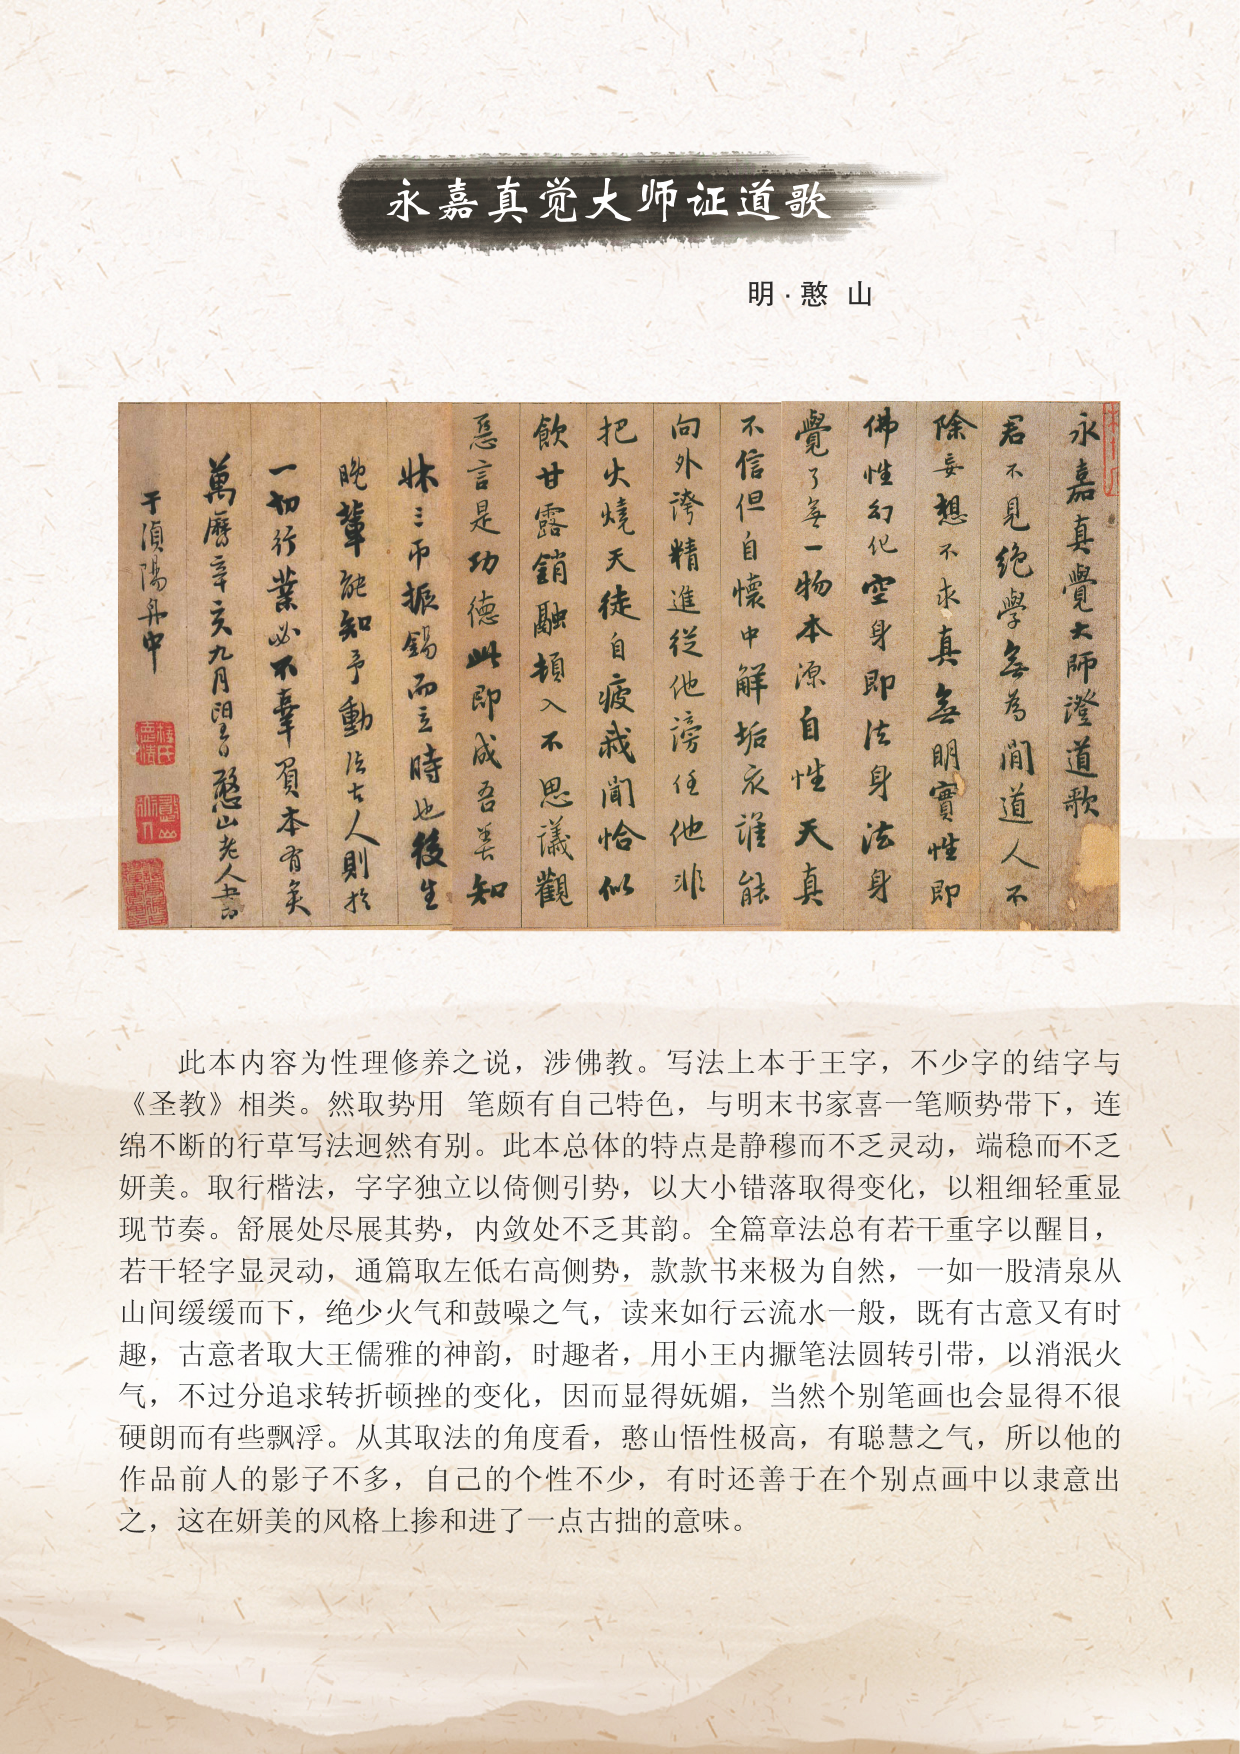 永嘉真觉大师证道歌
明·憨 山
永嘉真覺大師證道歌
君不見絕學無為閒道人不
除妄想不求真無明實性即
佛性幻化空身即法身法身
覺了無一物本源自性天真
不信但自懷中解垢衣誰能
向外誇精進從他謗任他非
把火燒天徒自疲我聞恰似
飲甘露銷融頓入不思議觀
惡言是功德此即成吾善知
振錫而立時也後生
晚輩能知予動法古人則於
一切行業必不辜負本有矣
萬曆辛亥九月憨山老人書
于湞陽舟中
此本内容为性理修养之说，涉佛教。写法上本于王字，不少字的结字与
《圣教》相类。然取势用 笔颇有自己特色，与明末书家喜一笔顺势带下，连
绵不断的行草写法迥然有别。此本总体的特点是静穆而不乏灵动，端稳而不乏
妍美。取行楷法，字字独立以倚侧引势，以大小错落取得变化，以粗细轻重显
现节奏。舒展处尽展其势，内敛处不乏其韵。全篇章法总有若干重字以醒目，
若干轻字显灵动，通篇取左低右高侧势，款款书来极为自然，一如一股清泉从
山间缓缓而下，绝少火气和鼓噪之气，读来如行云流水一般，既有古意又有时
趣，古意者取大王儒雅的神韵，时趣者，用小王内擫笔法圆转引带，以消泯火
气，不过分追求转折顿挫的变化，因而显得妩媚，当然个别笔画也会显得不很
硬朗而有些飘浮。从其取法的角度看，憨山悟性极高，有聪慧之气，所以他的
作品前人的影子不多，自己的个性不少，有时还善于在个别点画中以隶意出
之，这在妍美的风格上掺和进了一点古拙的意味。